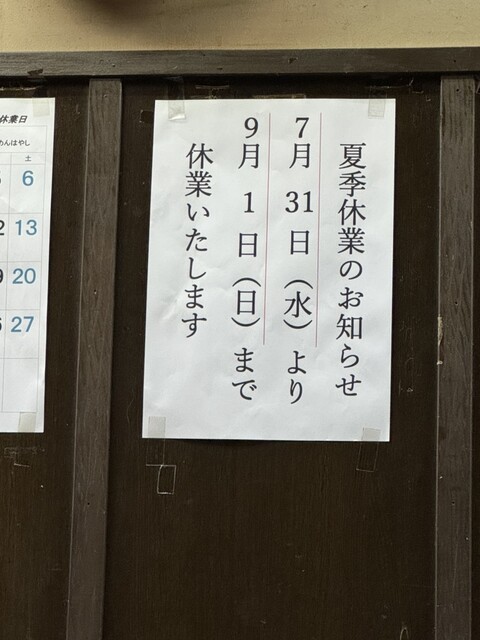 夏季休業のお知らせ
7月31日(水)より
9月1日(日)まで
休業いたします
休業日
めんはやし
土
6
13
20
27